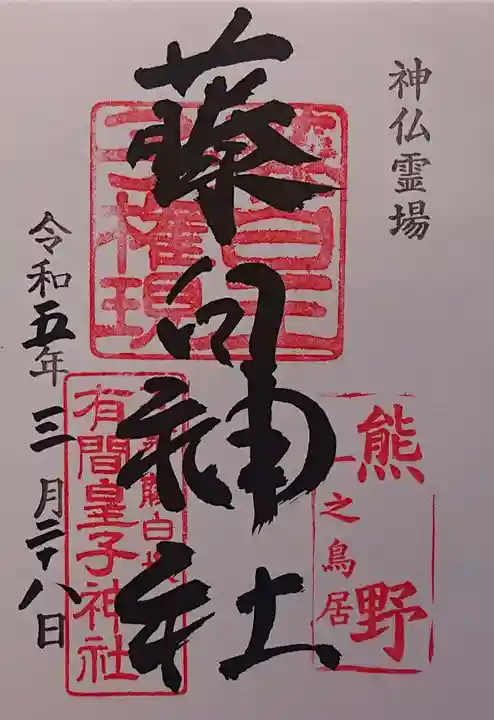 神仏霊場
藤白神社
令和五年三月二十八日
熊野
一之鳥居
有間皇子神社